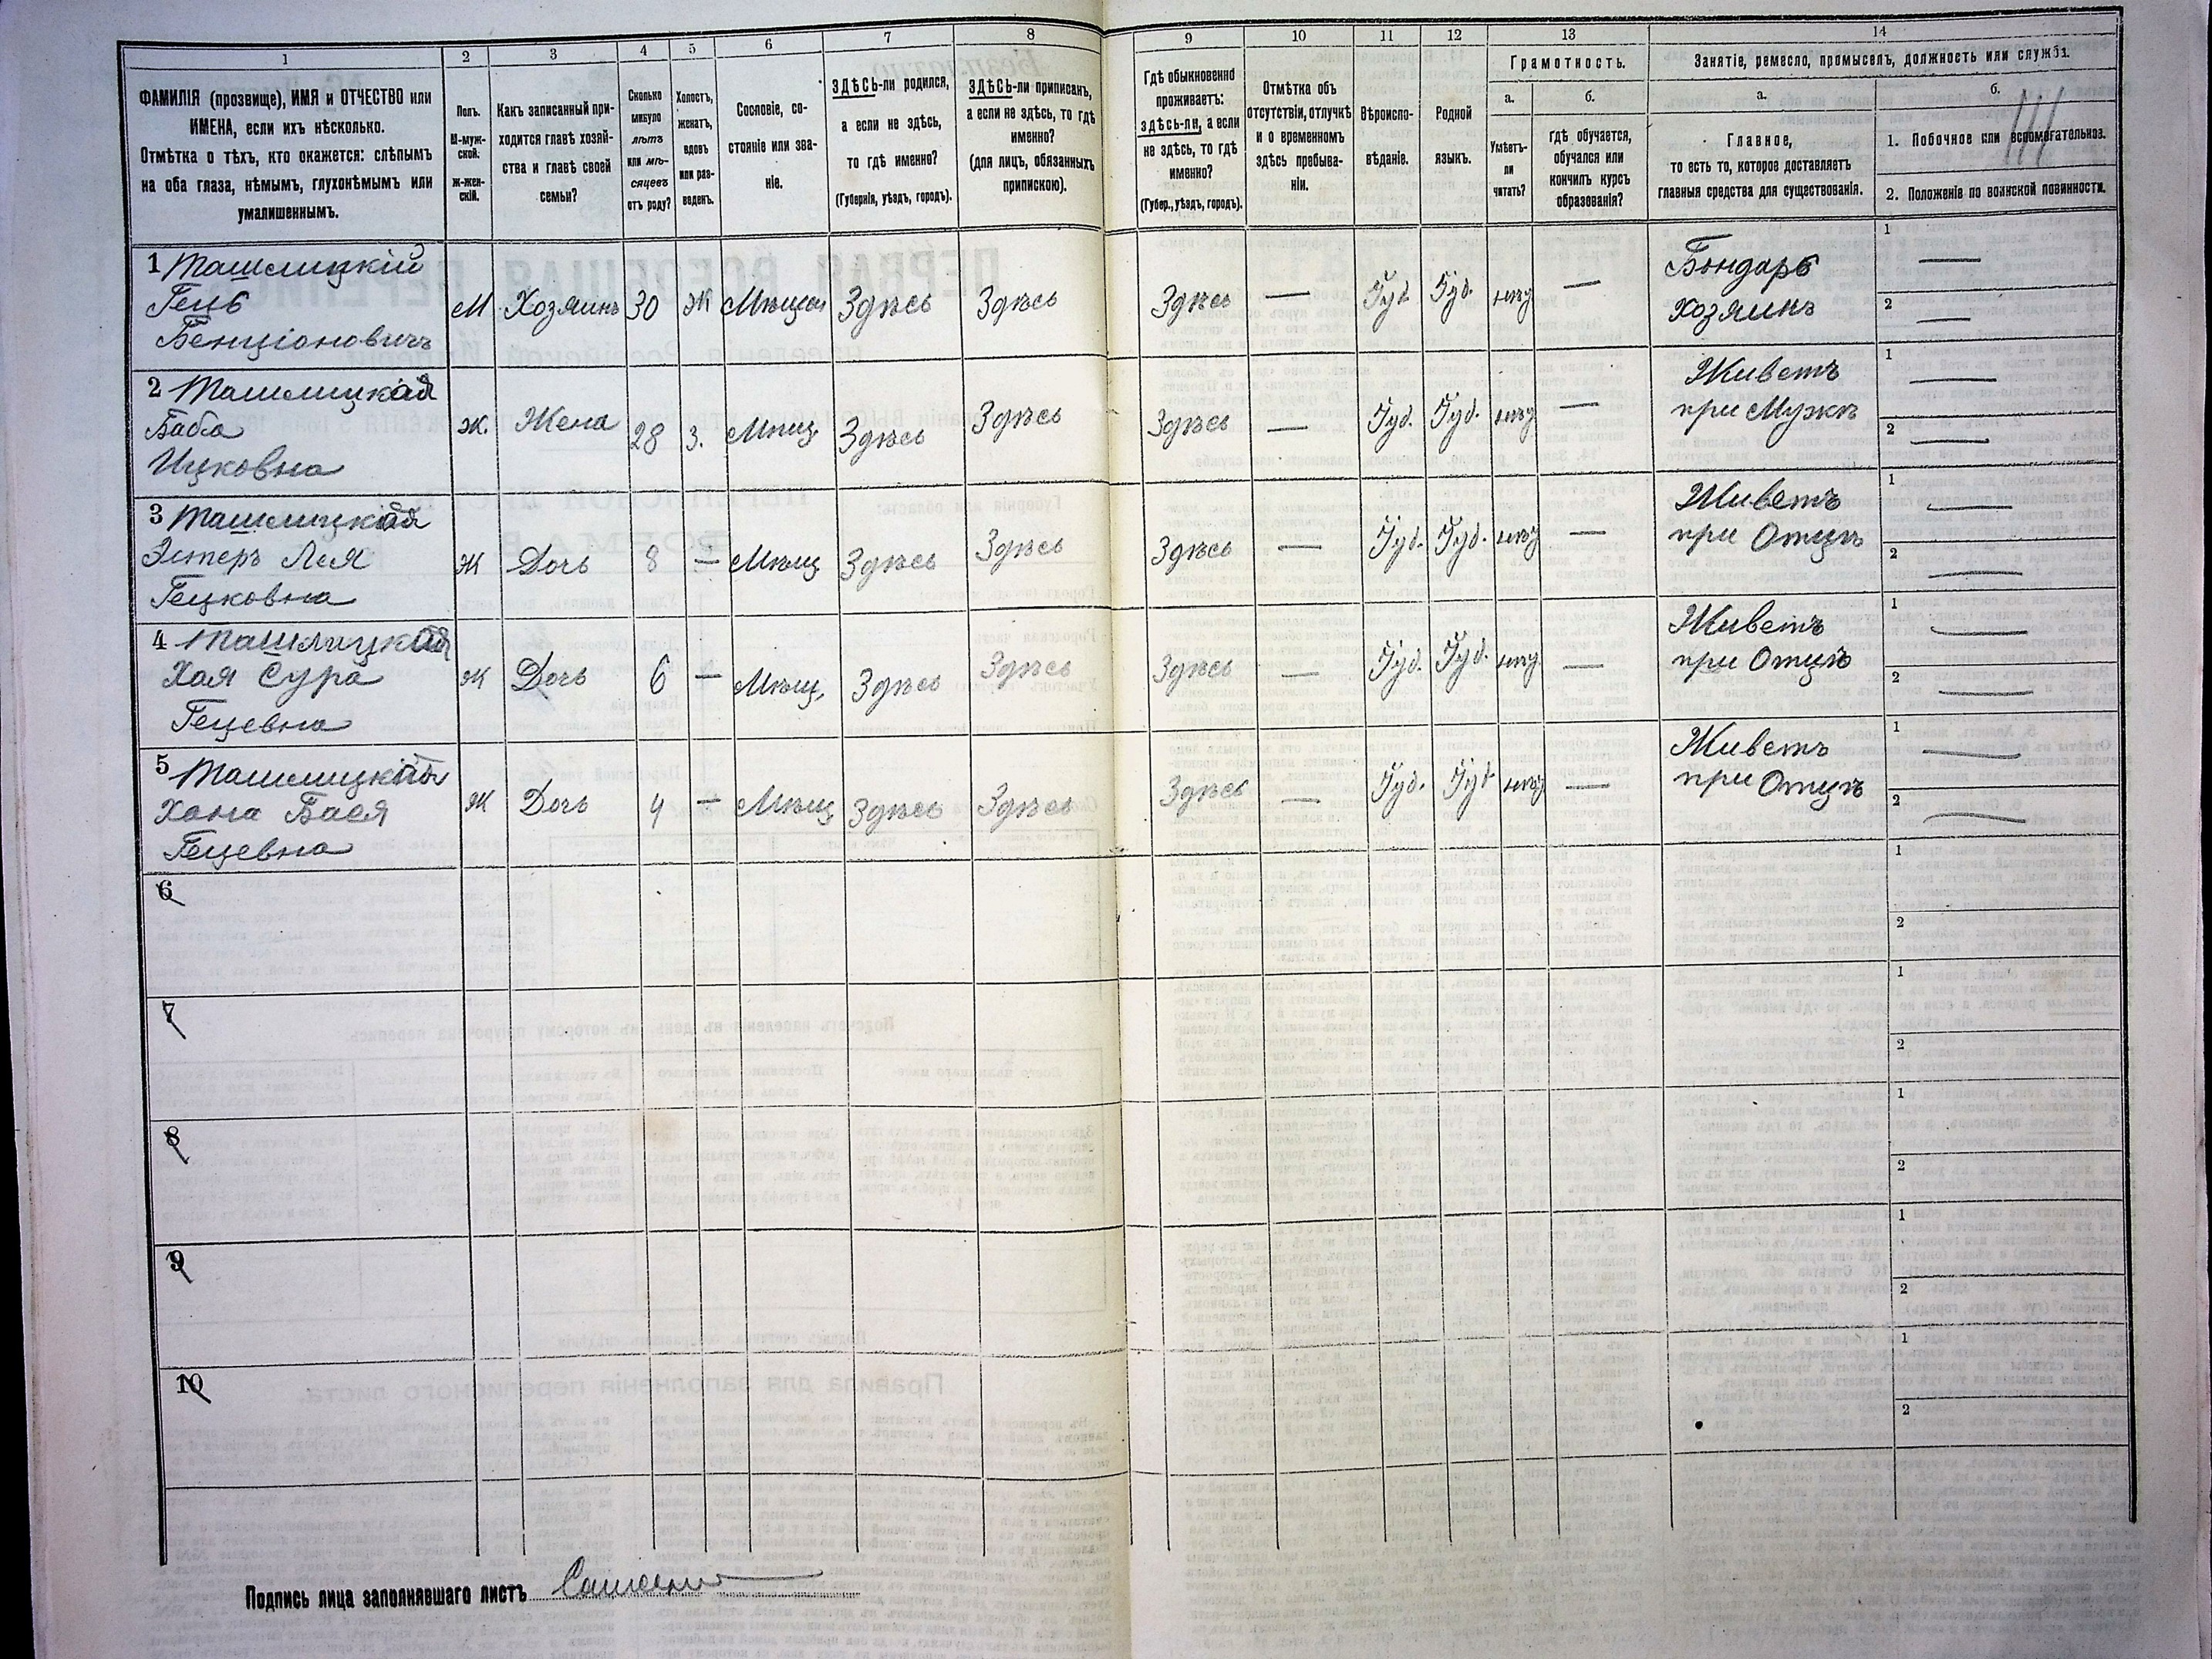 1 2 3 4 5 6 7 8 9 10 11 12 13 14
ФАМИЛІЯ (прозвище), ИМЯ и ОТЧЕСТВО или
ИМЕНА, если ихъ нѣсколько.
Отмѣтка о тѣхъ, кто окажется: слѣпымъ
на оба глаза, нѣмымъ, глухонѣмымъ или
умалишеннымъ.
Полъ.
М-муж-
ской.
Ж-жен-
скій.
Какъ записанный при-
ходится главѣ хозяй-
ства и главѣ своей
семьи?
Сколько
минуло
лѣтъ
или мѣ-
сяцевъ
отъ роду?
Холостъ,
женатъ,
вдовъ
или раз-
веденъ.
Сословіе, со-
стояніе или зва-
ніе.
ЗДѢСЬ-ли родился,
а если не здѣсь,
то гдѣ именно?
(Губернія, уѣздъ, городъ).
ЗДѢСЬ-ли приписанъ,
а если не здѣсь, то гдѣ
именно?
(для лицъ, обязанныхъ
припискою).
Гдѣ обыкновенно
проживаетъ:
здѣсь-ли, а если
не здѣсь, то гдѣ
именно?
(Губер., уѣздъ, городъ).
Отмѣтка объ
отсутствіи, отлучкѣ
и о временномъ
здѣсь пребыва-
ніи.
Вѣроиспо-
вѣданіе.
Родной
языкъ.
Грамотность.
а.
Умѣетъ-
ли
читать?
б.
гдѣ обучается,
обучался или
кончилъ курсъ
образованія?
Занятіе, ремесло, промыселъ, должность или служба.
а.
Главное,
то есть то, которое доставляетъ
главныя средства для существованія.
б.
1. Побочное или вспомогательное.
2. Положеніе по воинской повинности.
1 Ташлицкій
Гецъ
Бенціоновичъ
М Хозяинъ 30 Ж Мѣщан Здѣсь Здѣсь Здѣсь — Іуд. Іуд. — Бондарь
хозяинъ
1 —
2 —
2 Ташлицкая
Баба
Ицковна
Ж. Жена 28 З. Мѣщ. Здѣсь Здѣсь Здѣсь — Іуд. Іуд. — Живетъ
при Мужѣ
1 —
2 —
3 Ташлицкая
Эстеръ Лея
Гецковна
Ж Дочь 8 — Мѣщ Здѣсь Здѣсь Здѣсь — Іуд. Іуд. — Живетъ
при Отцѣ
1 —
2 —
4 Ташлицкая
Хая Сура
Гецевна
Ж Дочь 6 — Мѣщ. Здѣсь Здѣсь Здѣсь — Іуд. Іуд. — Живетъ
при Отцѣ
1 —
2 —
5 Ташлицкая
Хана Бася
Гецевна
Ж Дочь 4 — Мѣщ Здѣсь Здѣсь Здѣсь — Іуд. Іуд — Живетъ
при Отцѣ
1 —
2 —
6
1
2
7
1
2
8
1
2
9
1
2
10
1
2
Подпись лица заполнявшаго листъ